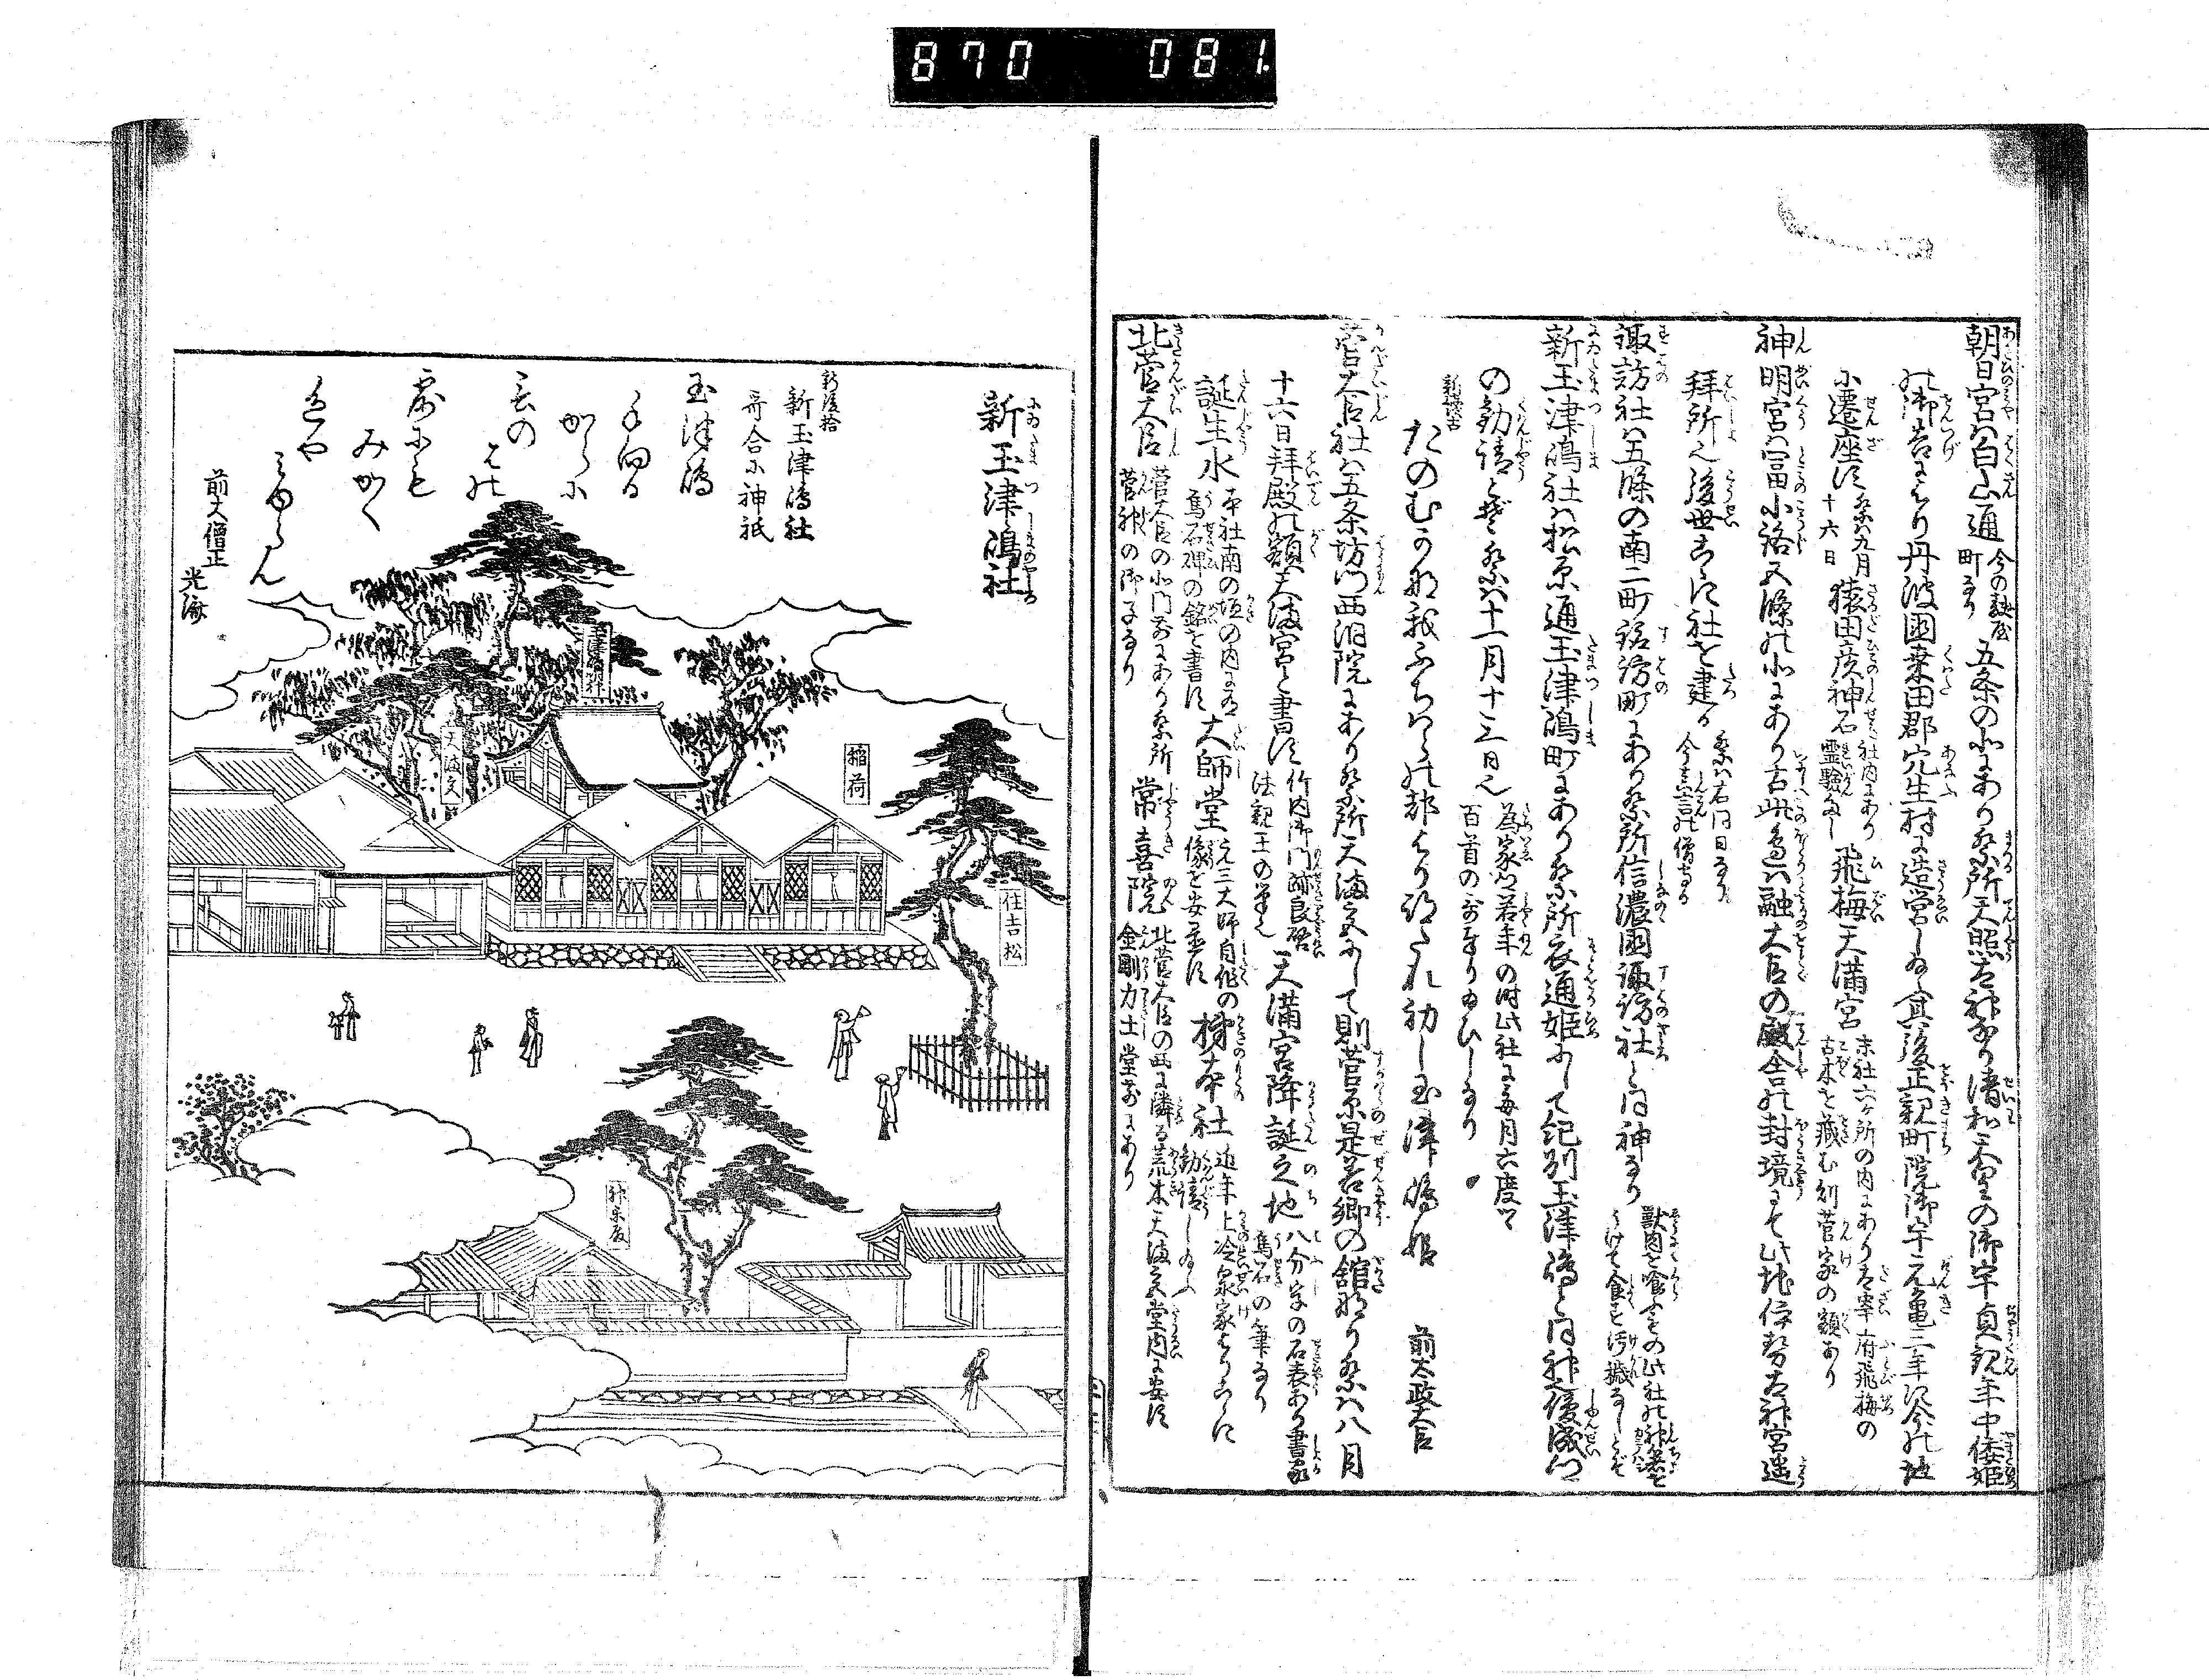 870 081.
朝日宮は白山通
今の麩屋
町なり
五条の北にあり祭所天照太神なり清和天皇の御宇貞観年中倭姫
の御告により丹波国桑田郡穴生村に造営し給ふ其後正親町院御宇元亀三年に今の地
に遷座す
祭は九月
十六日
猿田彦神石
社内にあり
霊験多し
飛梅天満宮
末社六ヶ所の内にあり太宰府飛梅の
古木を蔵む則菅家の額あり
神明宮は富小路五條の北にあり古此島は融大臣の殿舎の封境にて此地伊勢太神宮遥
拝所也後世こゝに社を建る
祭は右同日なり
今真言の僧守る
諏訪社は五條の南二町諏訪町にあり祭所信濃国諏訪社と同神なり
獣肉を喰ふもの此社の神箸を
うけて食を汚穢なしとぞ
新玉津嶋社は松原通玉津嶋町にあり祭所衣通姫にして紀州玉津嶋と同神俊成卿
の勧請とぞ祭は十一月十三日也
為家卿若年の時此社に毎月六度づゝ
百首の哥奉り給ひしなり
新後古
たのむかな我ふぢはらの都より跡たれ初し玉津嶋姫
前太政大臣
菅大臣社は五条坊門西洞院にあり祭所天満宮にして則菅原是善卿の館なり祭は八月
十六日拝殿の額天満宮と書す
竹内御門跡良恕
法親王の筆也
天満宮降誕之地
八分字の石表あり書家
烏石の筆なり
誕生水
本社南の垣の内にあり
烏石碑の銘を書す
大師堂
元三大師自作の
像を安置す
梅本社
近年上冷泉家よりこゝに
勧請し給ふ
北菅大臣
菅大臣の北門前にあり祭所
菅神の御子なり
常喜院
北菅大臣の西に隣る荒木天満宮堂内に安す
金剛力士堂前にあり
新玉津嶋社
新後拾
新玉津嶋社
哥合に神祇
玉津嶋
手向る
からに
言の
はの
露にも
みがく
色や
みゆらん
前大僧正
光済
玉津嶋明神
天満宮
稲荷
住吉松
神楽殿